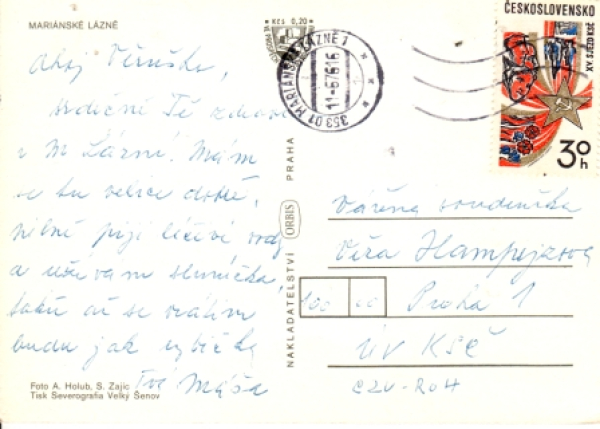 MARIÁNSKÉ LÁZNĚ
Kčs 0,20
ČESKOSLOVENSKO
XV. SJEZD KSČ
30h
353 01 MARIÁNSKÉ LÁZNĚ 1
11-6.76-16
Ahoj Věruško,
srdečně Tě zdraví
z M Lázní. Mám
se tu velice dobře,
pilně piji léčivé vody
a užívám sluníčka,
takže až se vrátím
budu jak rybička
Tvá Máša
Vážená soudružka
Věra Hampejzová
100 00 Praha 1
ÚV KSČ
NAKLADATELSTVÍ ORBIS PRAHA
Foto A. Holub, S. Zajíc
Tisk Severografia Velký Šenov